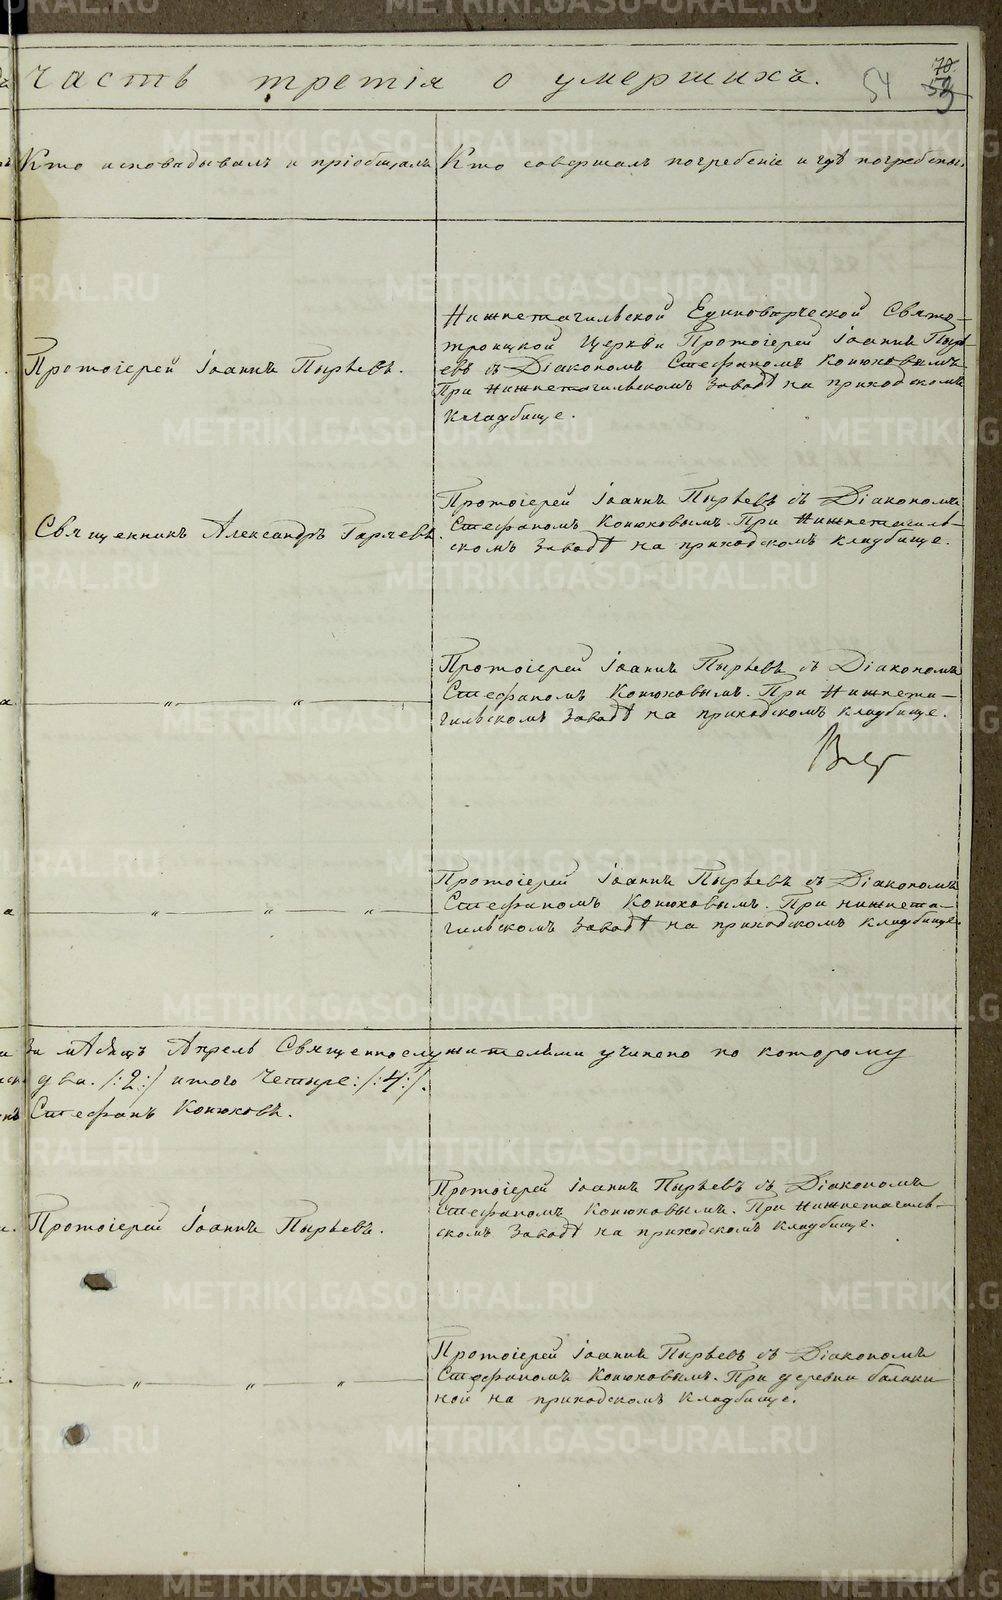 часть третія о умершихъ.
54
70.
53
Кто исповѣдывалъ и пріобщалъ
Кто совершалъ погребеніе и гдѣ погребены.
Протоіерей Іоаннъ Пырьевъ.
Нижнетагильской Единовѣрческой Свято-
троицкой Церкви Протоіерей Іоаннъ Пырь
евъ съ Діакономъ Стефаномъ Конюховымъ
При Нижнетагильскомъ заводѣ на приходскомъ
кладбище.
Священникъ Александръ Гаряевъ.
Протоіерей Іоаннъ Пырьевъ съ Діакономъ
Стефаномъ Конюховымъ. При Нижнетагиль-
скомъ заводѣ на приходскомъ кладбище.
— „ — „ —
Протоіерей Іоаннъ Пырьевъ съ Діакономъ
Стефаномъ Конюховымъ. При Нижнета-
гильскомъ заводѣ на приходскомъ кладбище.
— „ — „ — „ —
Протоіерей Іоаннъ Пырьевъ съ Діакономъ
Стефаномъ Конюховымъ. При нижнета-
гильскомъ заводѣ на приходскомъ кладбище.
за мѣсяцъ Апрель Священнослужителями учинено по которому
два. /:2:/ итого четыре: /:4:/.
Стефанъ Конюховъ.
Протоіерей Іоаннъ Пырьевъ.
Протоіерей Іоаннъ Пырьевъ съ Діакономъ
Стефаномъ Конюховымъ. При Нижнетагиль-
скомъ заводѣ на приходскомъ кладбище.
— „ — „ — „ —
Протоіерей Іоаннъ Пырьевъ съ Діакономъ
Стефаномъ Конюховымъ. При деревни балаки
ной на приходскомъ кладбище.
METRIKI.GASO-URAL.RU